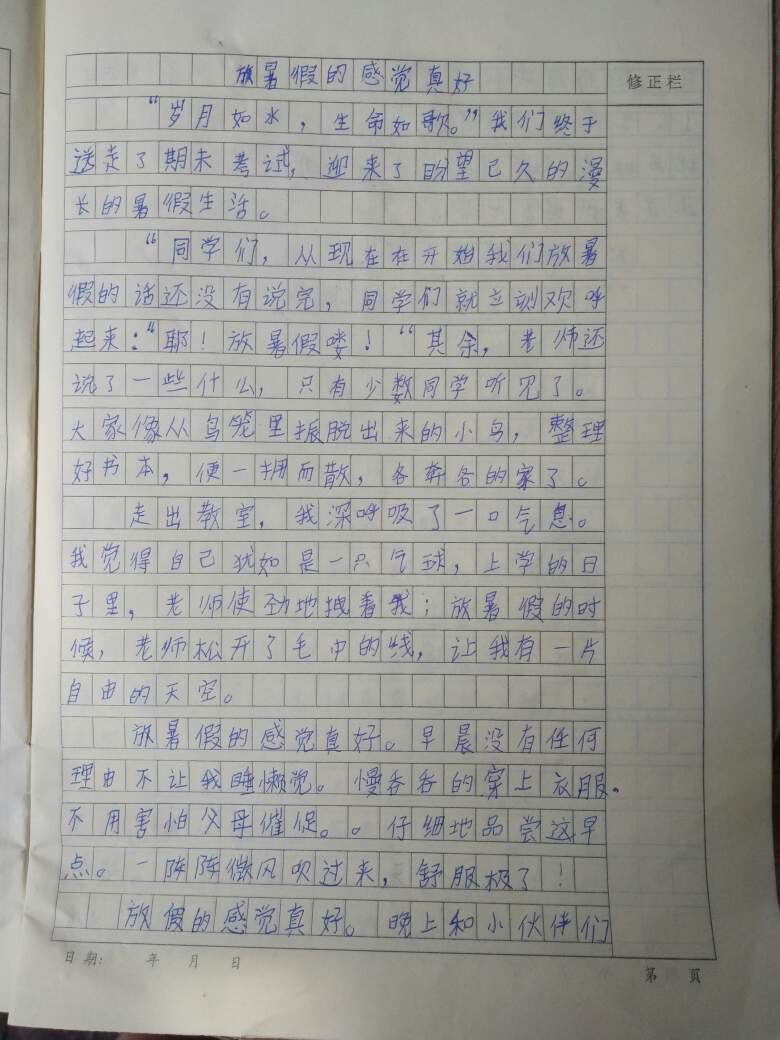 放暑假的感觉真好
修正栏
“岁月如水，生命如歌。”我们终于
送走了期末考试，迎来了盼望已久的漫
长的暑假生活。
“同学们，从现在在开始我们放暑
假的话还没有说完，同学们就立刻欢呼
起来：“耶！放暑假喽！“其余，老师还
说了一些什么，只有少数同学听见了。
大家像从鸟笼里振脱出来的小鸟，整理
好书本，便一拥而散，各奔各的家了。
走出教室，我深呼吸了一口气息。
我觉得自己犹如是一只气球，上学的日
子里，老师使劲地拽着我；放暑假的时
候，老师松开了毛中的线，让我有一片
自由的天空。
放暑假的感觉真好。早晨没有任何
理由不让我睡懒觉。慢吞吞的穿上衣服.
不用害怕父母催促。。仔细地品尝这早
点。一阵阵微风吹过来，舒服极了！
放假的感觉真好。晚上和小伙伴们
日期： 年 月 日
第 页